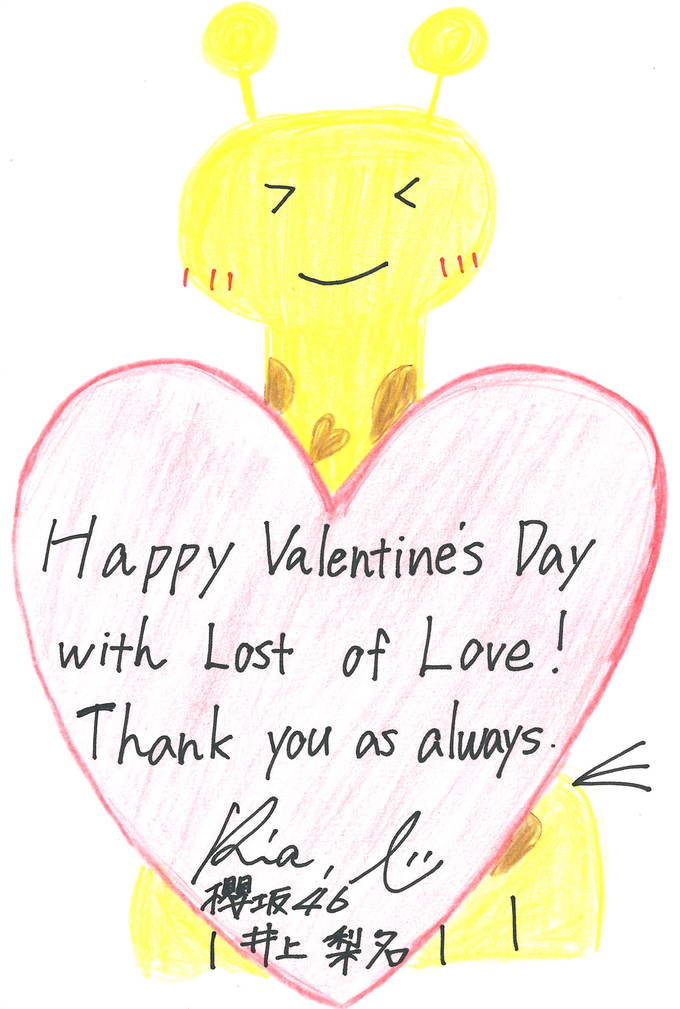 Happy Valentine's Day
with Lost of Love!
Thank you as always.
Ria,
櫻坂46
井上 梨名